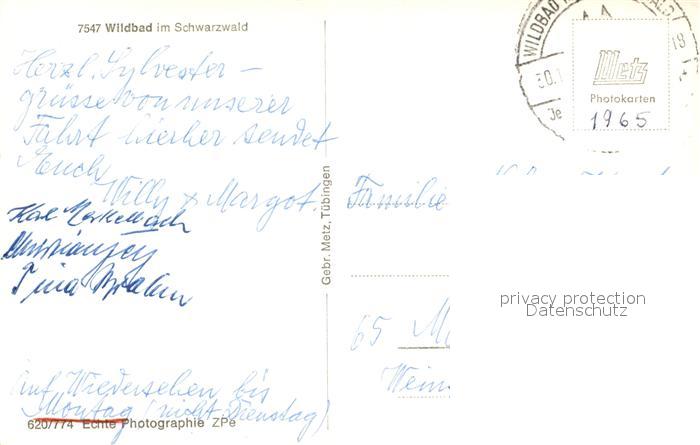 7547 Wildbad im Schwarzwald
Herzl. Sylvester-
grüsse von unserer
Fahrt hierher sendet
Euch
Willy & Margot
Karl
Tina
Auf Wiedersehen bis
Montag (nicht Dienstag)
620/774 Echte Photographie ZPe
Gebr. Metz, Tübingen
WILDBAD
30.1
18
Je
Metz
Photokarten
1965
Familie
privacy protection
Datenschutz
65 M
Wein